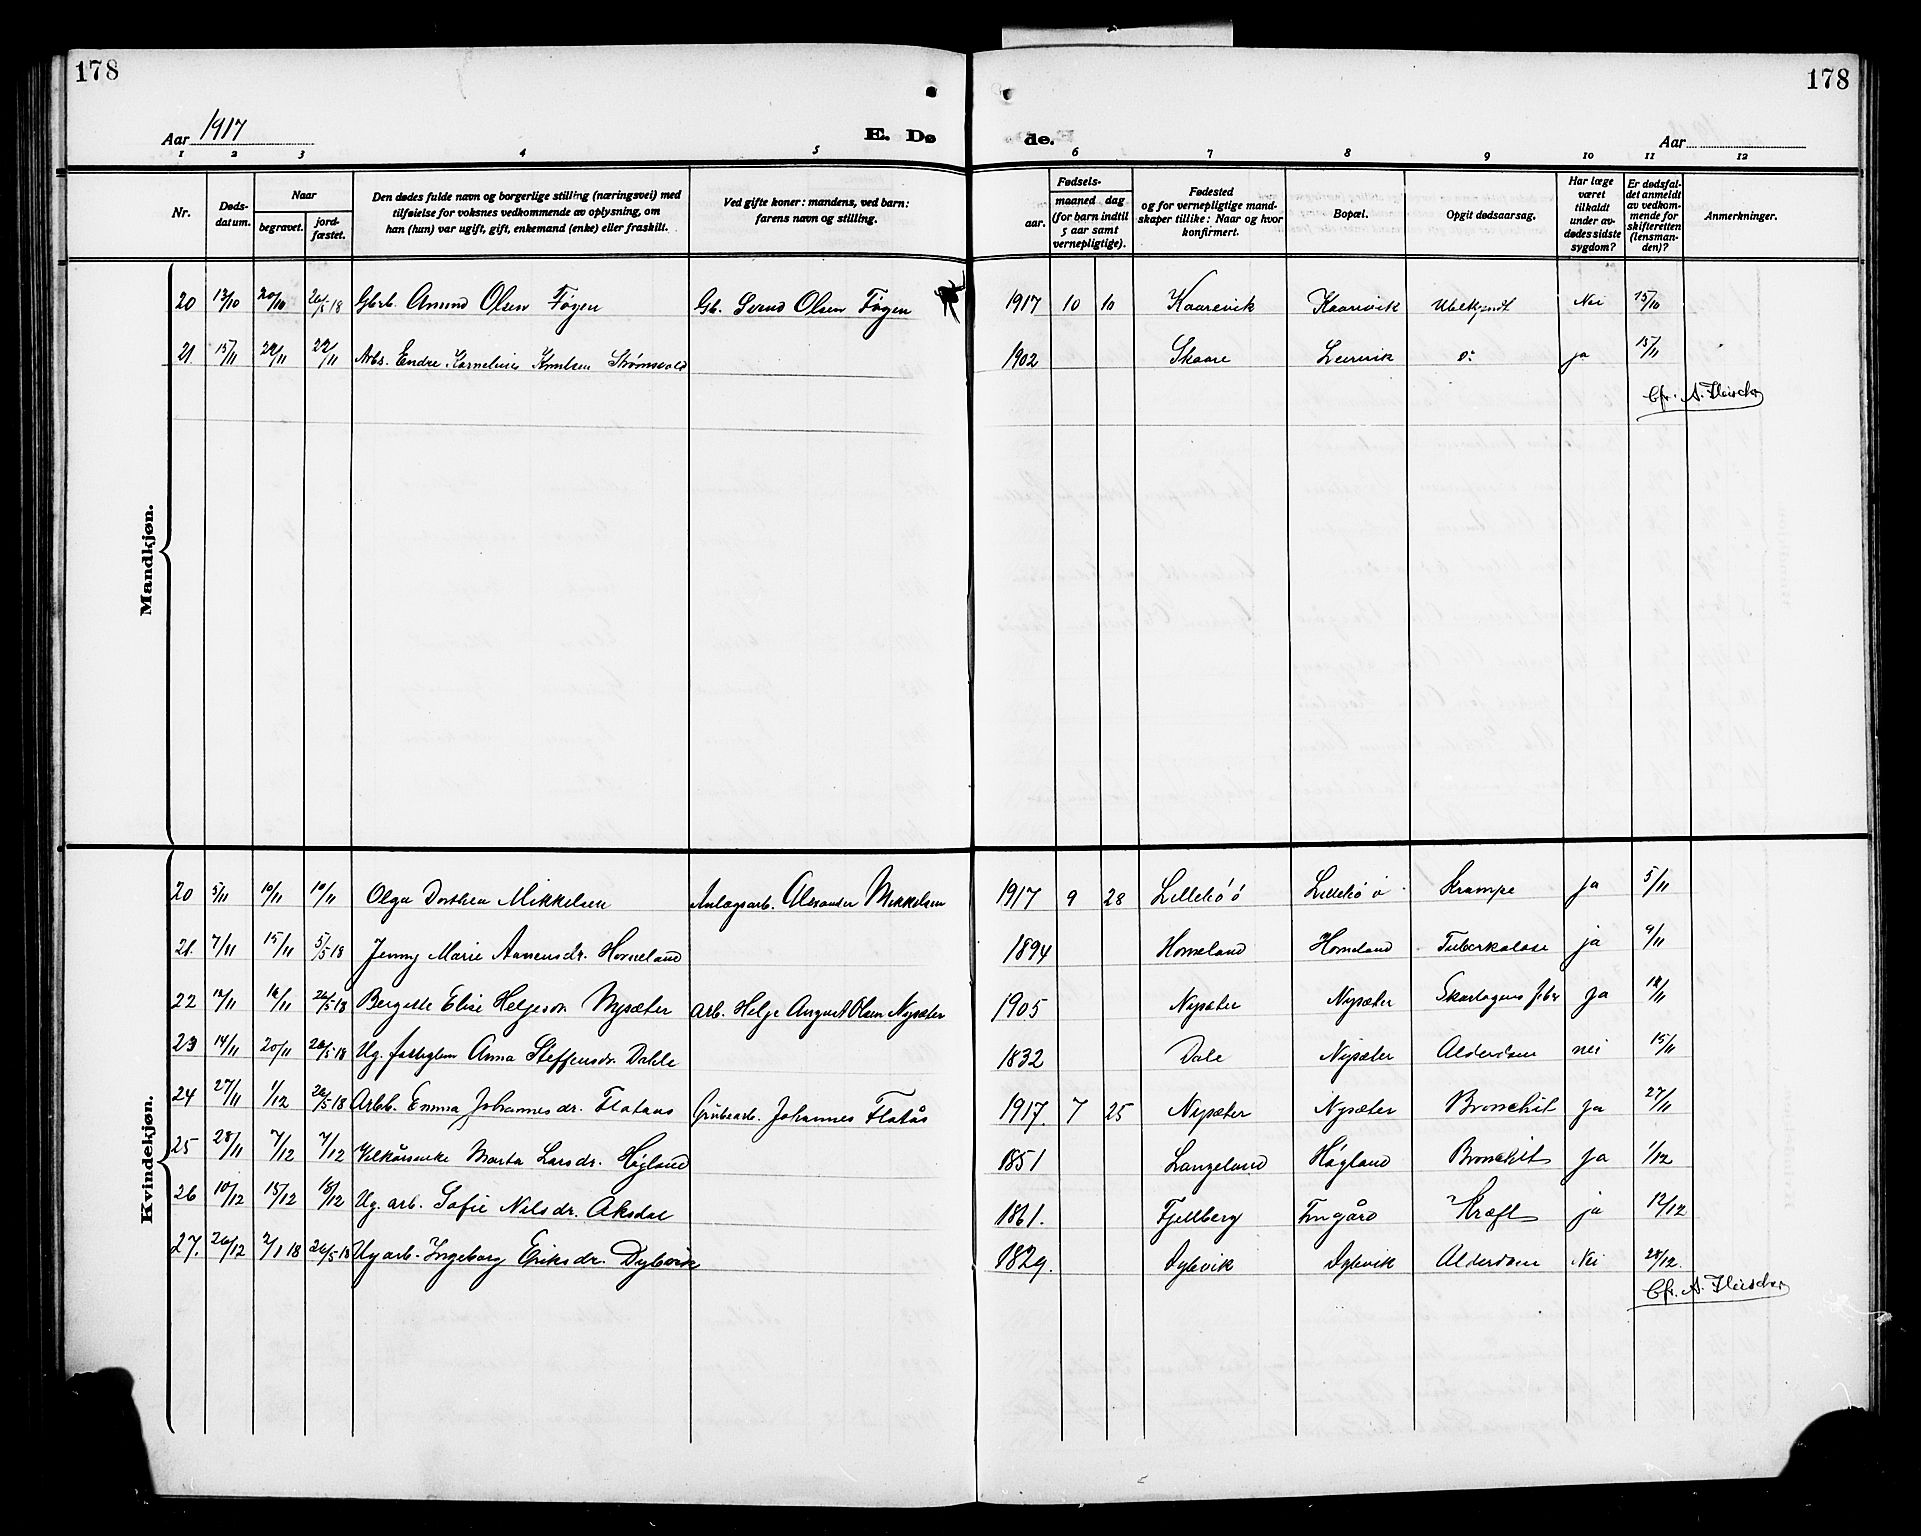 178
178
Aar 1917
E. Dø
de.
Aar
1 2 3 4 5 6 7 8 9 10 11 12
Nr.
Døds-
datum.
Naar
begravet.
jord-
fæstet.
Den dødes fulde navn og borgerlige stilling (næringsvei) med
tilføielse for voksnes vedkommende av oplysning, om
han (hun) var ugift, gift, enkemand (enke) eller fraskilt.
Ved gifte koner: mandens, ved barn:
farens navn og stilling.
Fødsels-
aar.
maaned dag
(for barn indtil
5 aar samt
vernepligtige).
Fødested
og for vernepligtige mand-
skaper tillike: Naar og hvor
konfirmert.
Bopæl.
Opgit dødsaarsag.
Har læge
været
tilkaldt
under av-
dødes sidste
sygdom?
Er dødsfal-
det anmeldt
av vedkom-
mende for
skifteretten
(lensman-
den)?
Anmerkninger.
Mandkjøn.
20 13/10 20/10 26/5 18 Gbrb. Amund Olsen Føyen Gb. Svend Olsen Føyen 1917 10 10 Kaarevik Kaarevik Ubekjendt Nei 15/10
21. 15/11 22/11 22/11 Arbs. Endre Kornelius Knutsen Strømsvold 1902 Skaare Leirvik o: ja 15/11
Cfr. A. Fleischer
Kvindekjøn.
20 5/11 10/11 10/11 Olga Dorthea Mikkelsen Anlægsarb. Alexander Mikkelsen 1917 9 28 Lillebø ö Lillebø ö Krampe ja 5/11
21. 7/11 15/11 5/5 18 Jenny Marie Aanensdr. Horneland 1894 Horneland Horneland Tuberkulose ja 9/11
22 12/11 16/11 26/5 18 Bergitte Elise Helgeson Nysæter Arb. Helge August Olsen Nysæter 1905 Nysæter Nysæter Skarlagens feber ja 12/11
23 14/11 20/11 26/5 18 Ug. fattiglem Anna Steffensdr. Dahle 1832 Dale Nysæter Alderdom nei 15/11
24 27/11 1/12 26/5 18 Arbb. Emma Johannesdr. Flataas Grubearb. Johannes Flatås 1917. 7 25 Nysæter Nysæter Bronchit ja 27/11
25 28/11 7/12 7/12 Vilkårsenke Marta Larsdr. Høgland 1851 Langeland Høgland Bronchit ja 1/12
26 10/12 15/12 15/12 Ug. arb. Sofie Nilsdr. Aksdal 1861. Fjellberg Ja 12/12 Kræft
27. 26/12 2/1 18 26/5 18 Ug arb. Ingeborg Eriksdr. Dybvik 1829. Dybvik Dybvik Alderdom Nei 28/12.
Cfr. A. Fleischer